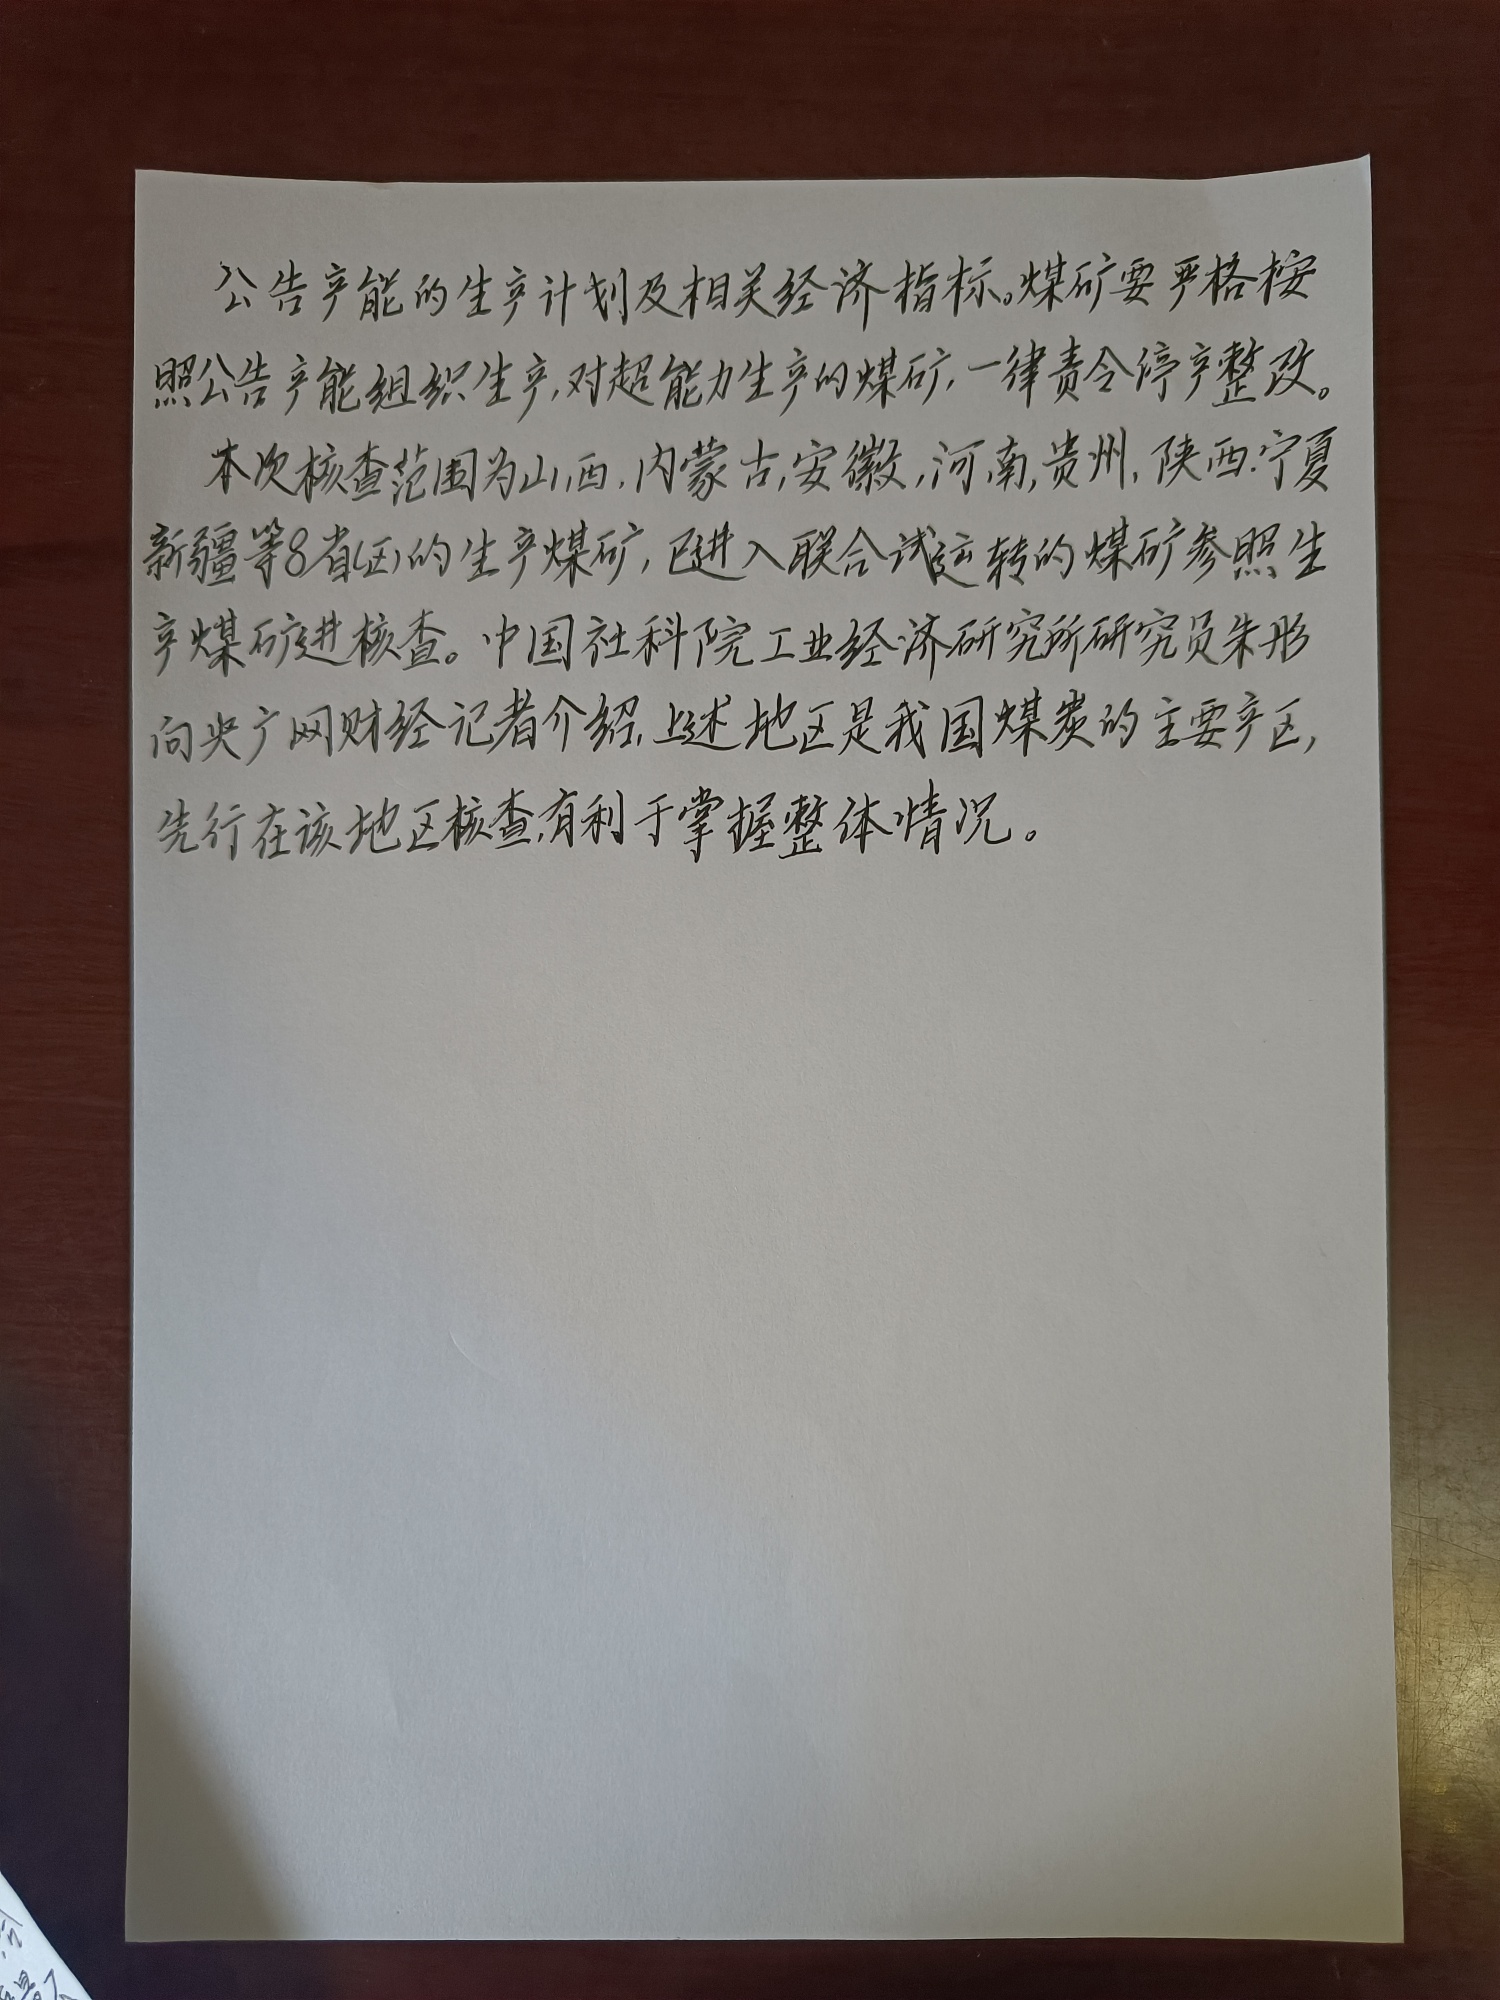 公告产能的生产计划及相关经济指标。煤矿要严格按
照公告产能组织生产,对超能力生产的煤矿,一律责令停产整改。
本次核查范围为山西,内蒙古,安徽,河南,贵州,陕西.宁夏
新疆等8省(区)的生产煤矿,已进入联合试运转的煤矿参照生
产煤矿进核查。中国社科院工业经济研究所研究员朱彤
向央广网财经记者介绍,上述地区是我国煤炭的主要产区,
先行在该地区核查,有利于掌握整体情况。